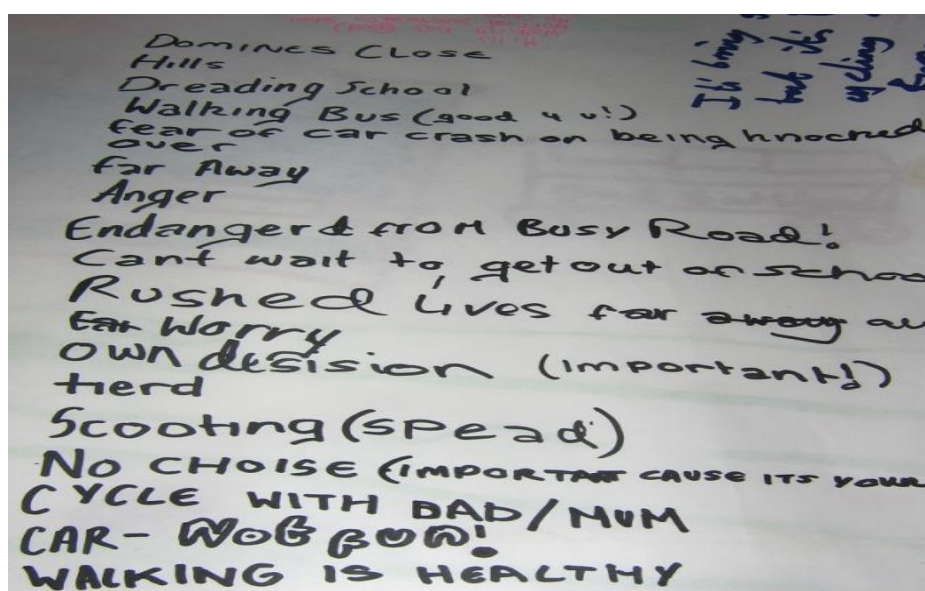 Domines Close
Hills
Dreading School
Walking Bus (good 4 u!)
fear of car crash or being knocked
over
far Away
Anger
Endangerd from Busy Road!
Cant wait to get out of schoo
Rushed Lives far away aw
Ear Worry
Own desision (important!)
tierd
Scooting (spead)
NO CHOISE (IMPORTAT CAUSE ITS YOUR
CYCLE WITH DAD/MUM
CAR- NOT FUN!
WALKING IS HEALTHY
It's bring
but its
cycling